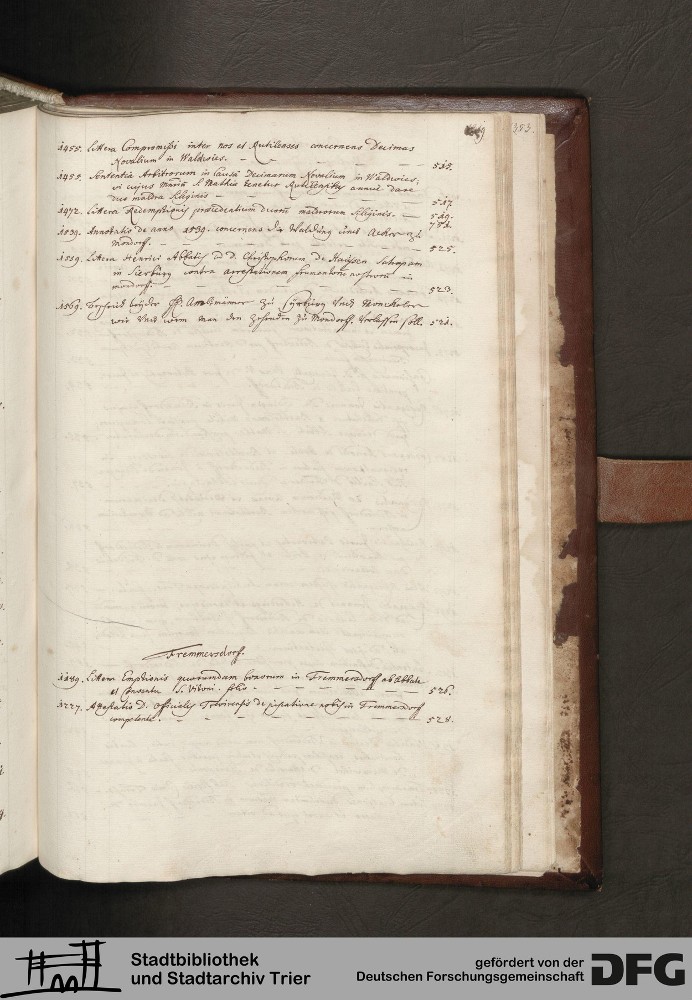 353.
1455. Littera Compromissi inter nos et Rutilenses concernens Decimas
Novalium in Waldwies. 515.
1455. Sententia Arbitrorum in Causa Decimarum Novalium in Waldwies,
vi cujus Monrii S. Mathiae tenetur Rutilensibus annue dare
duo maldra siliginis 517.
1472. Littera Redemptionis praecedentium duorum maldrorum siliginis. 519.
751.
1539. Annotatio de anno 1539. concernens die Waldung und Acker zu
Mondorff. 525.
1559. Littera Henrici Abbatis ad D. Christophorum de Hausen Satrapam
in Sierburg contra arrestationem frumentorum nostrorum in
mondorff. 523.
1569. Amlimänner zu Syrburg und
wie und wem man den Zehenden zu Mondorff. verlassen soll. 521.
Fremmersdorf.
1189. Littera Emptionis quorumdam bonorum in Fremmersdorff ab Abbate
et Conventu S. Vitoni. folio 526.
1227. Attestatio D. Officialis Trevirensis de piscatione nobis in Fremmersdorff
competente. 528.
Stadtbibliothek
und Stadtarchiv Trier
gefördert von der
Deutschen Forschungsgemeinschaft
DFG